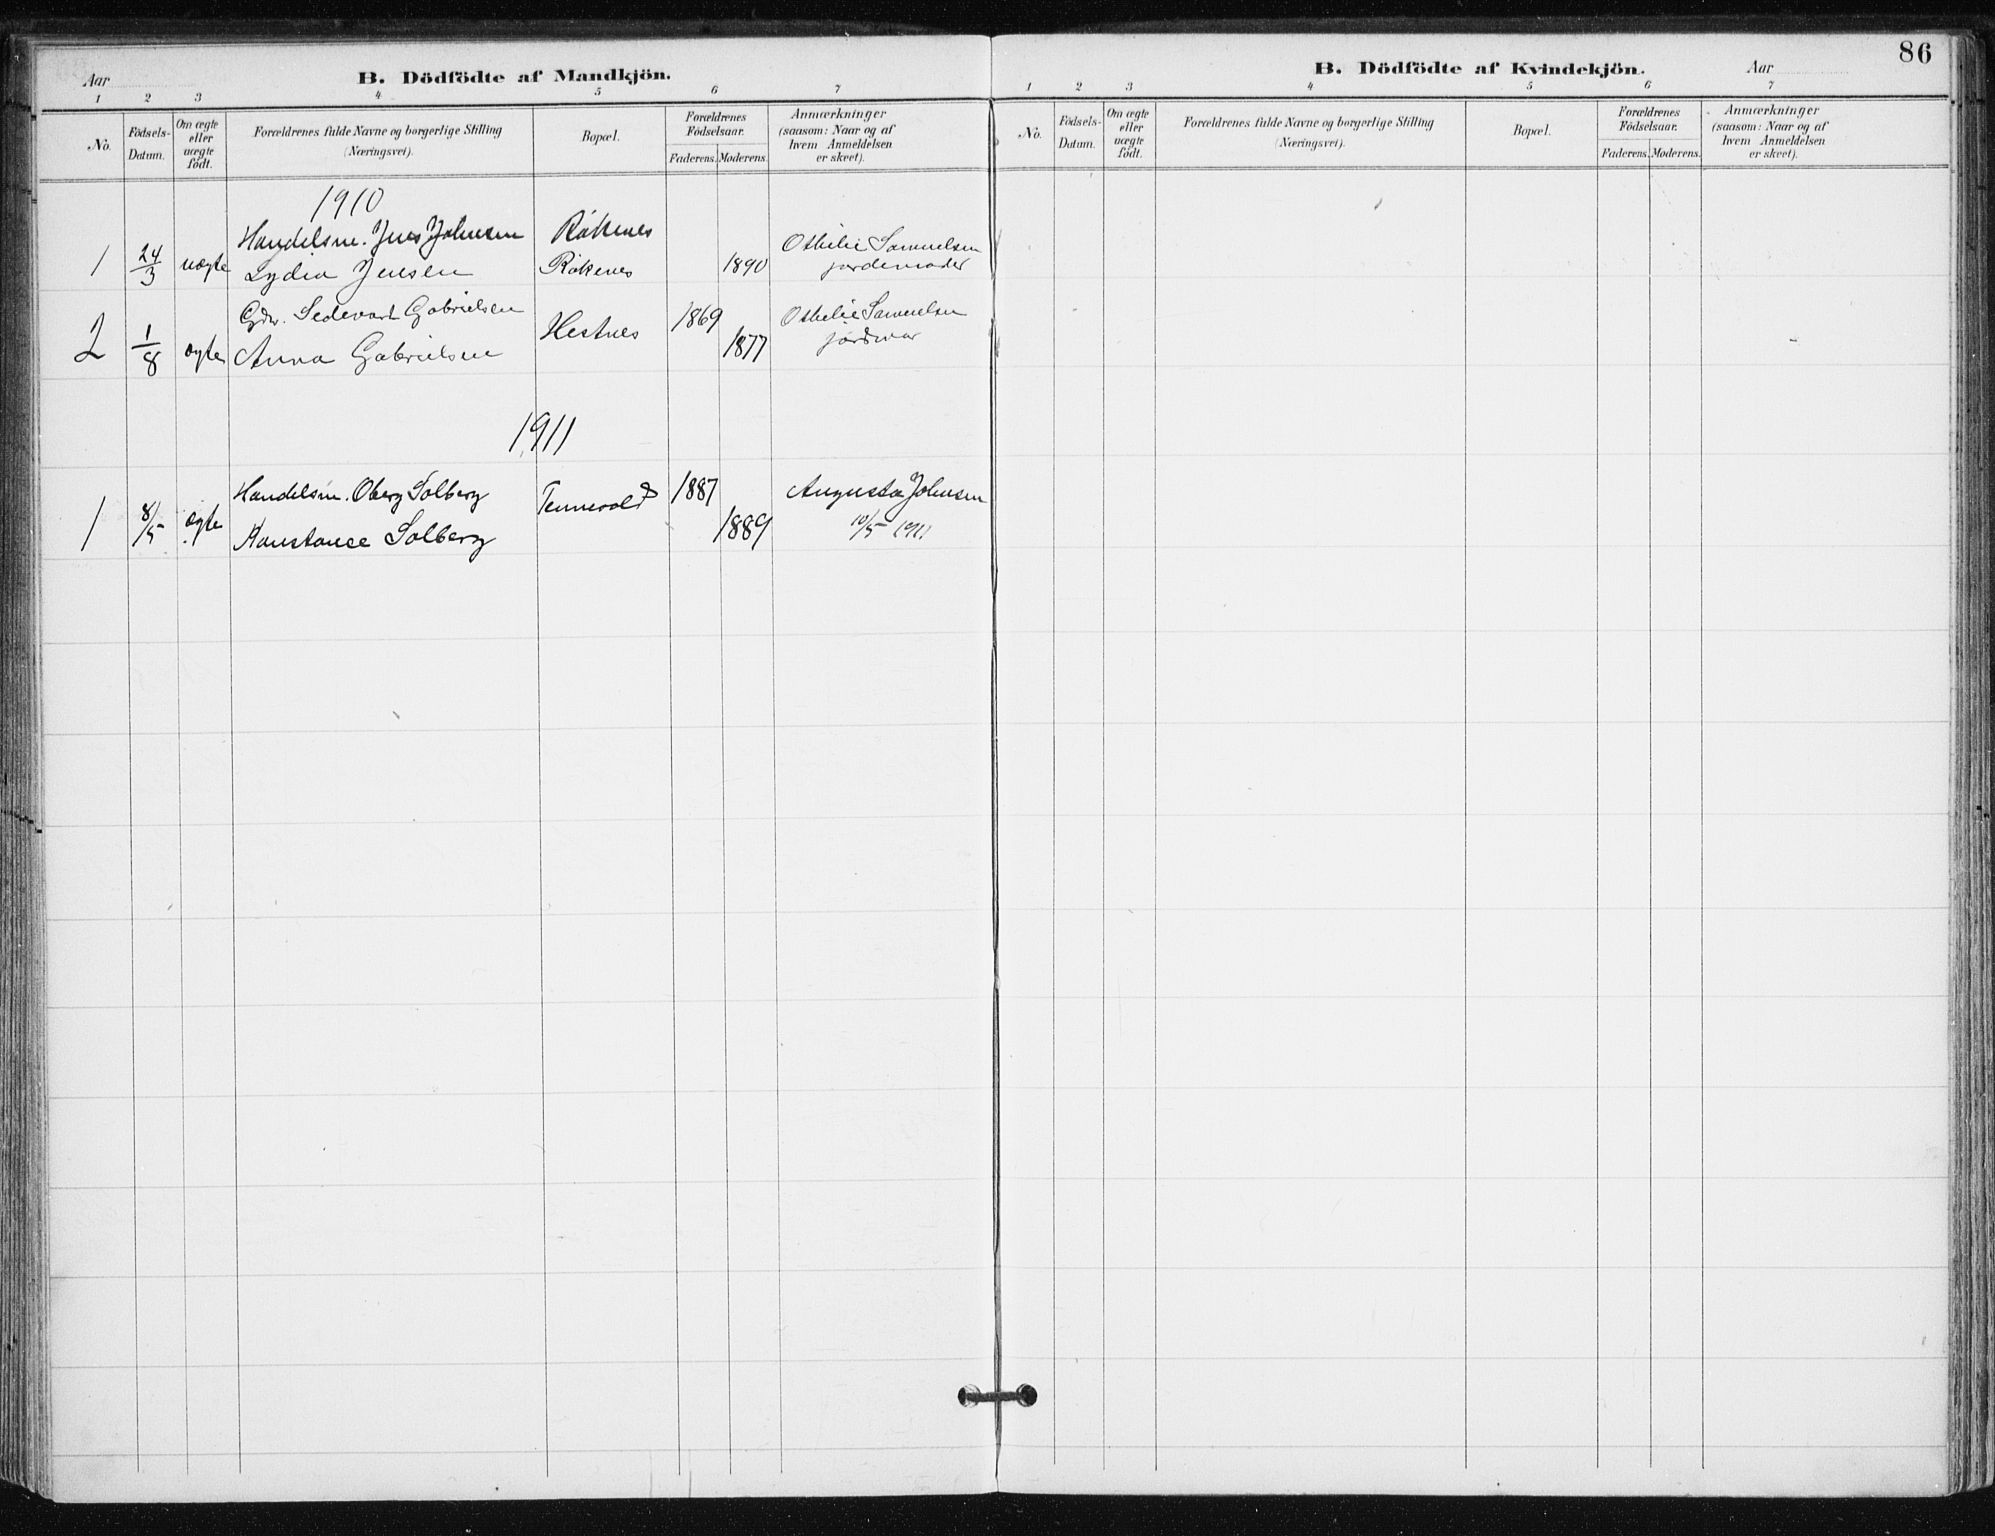 86
Aar
B. Dödfödte af Mandkjön.
1 2 3 4 5 6 7
No.
Födsels-
Datum.
Om ægte
eller
uægte
födt.
Forældrenes fulde Navne og borgerlige Stilling
(Næringsvei).
Bopæl.
Forældrenes
Födselsaar.
Faderens. Moderens.
Anmærkninger
(saasom: Naar og af
hvem Anmeldelsen
er skeet).
1910
Handelsm. Jens Johnsen Rökenes
1 24/3 uægte Lydia Jensen Rökenes 1890 Othelie Samuelsen
jordemoder
Gdr. Sedevart Gabrielsen
2 1/8 ægte Anna Gabrielsen Hestnes 1869 1877 Othelie Samuelsen
jordmor
1911
Handelsm. Oberg Solberg
1 8/5 ægte Konstance Solberg Tennevold 1887 1889 Augusta Johnsen
10/5 1911
B. Dödfödte af Kvindekjön.
Aar
1 2 3 4 5 6 7
No.
Födsels-
Datum.
Om ægte
eller
uægte
födt.
Forældrenes fulde Navne og borgerlige Stilling
(Næringsvei).
Bopæl.
Forældrenes
Födselsaar.
Faderens. Moderens.
Anmærkninger
(saasom: Naar og af
hvem Anmeldelsen
er skeet).